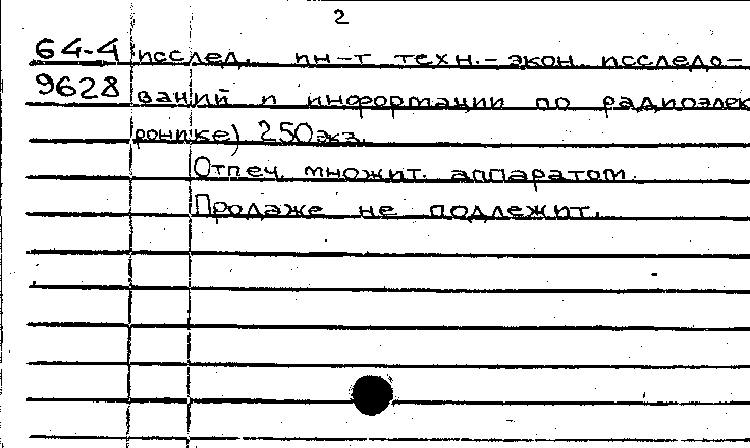 2
64-4 исслед. ин-т техн.-экон. исследо-
9628 ваний и информации по радиоэлек
ронике) 250 экз.
Отпеч. множит. аппаратом.
Продаже не подлежит.